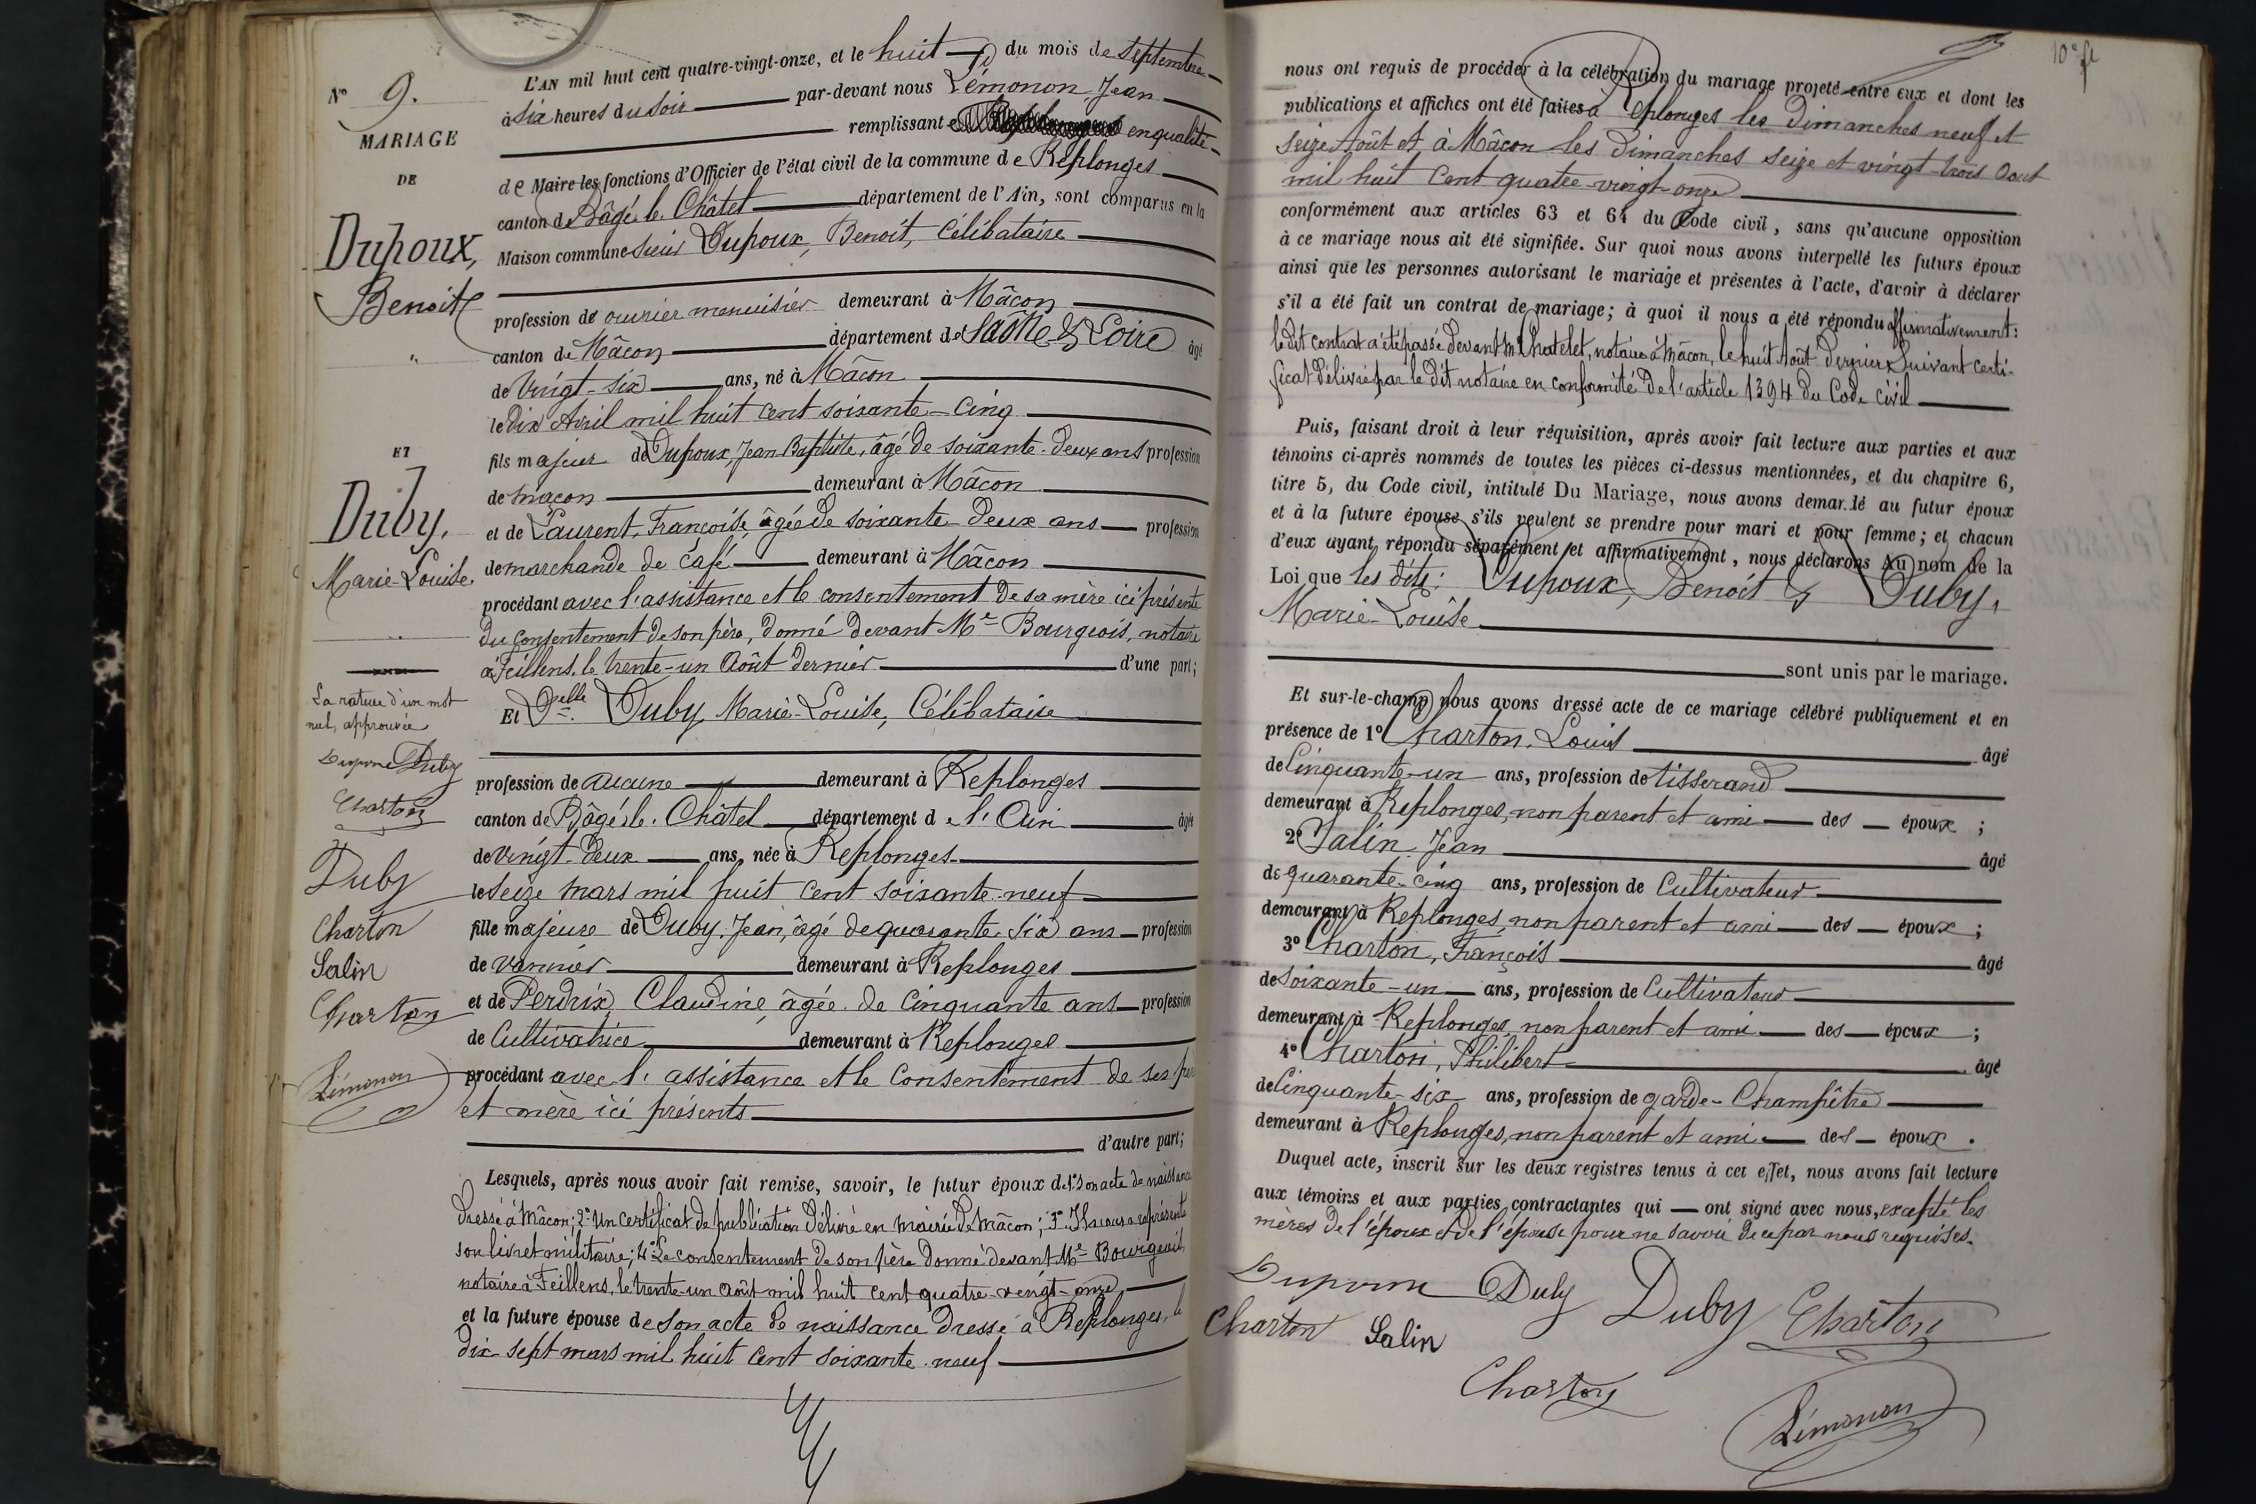 N° 9.
MARIAGE
DE
Dupoux,
Benoit
ET
Duby,
Marie-Louise.
La rature d'un mot
nul, approuvée
Duby
Charton
Duby
Charton
Salin
Charton
Lémonon
L'AN mil huit cent quatre-vingt-onze, et le huit du mois de Septembre
à six heures du soir par-devant nous Lémonon Jean
remplissant en qualité
de Maire les fonctions d'Officier de l'état civil de la commune de Replonges
canton de Bâgé-le-Châtel département de l'Ain, sont comparus en la
Maison commune sieur Dupoux, Benoit, Célibataire
profession de ouvrier menuisier demeurant à Mâcon
canton de Mâcon département de Saône & Loire âgé
de vingt-six ans, né à Mâcon
le dix Avril mil huit cent soixante-cinq
fils majeur de Dupoux, Jean Baptiste, âgé de soixante-deux ans profession
de maçon demeurant à Mâcon
et de Laurent, Françoise, âgée de soixante-deux ans profession
de marchande de café demeurant à Mâcon
procédant avec l'assistance et le consentement de sa mère ici présente
du consentement de son père, donné devant Me Bourgeois, notaire
à Feillens, le trente-un Août dernier d'une part;
Et Delle Duby Marie-Louise, Célibataire
profession de aucune demeurant à Replonges
canton de Bâgé-le-Châtel département de l'Ain âgée
de vingt-deux ans, née à Replonges
le seize mars mil huit cent soixante-neuf
fille majeure de Duby, Jean, âgé de quarante-six ans profession
de vannier demeurant à Replonges
et de Perdrix, Claudine, âgée de cinquante ans profession
de Cultivatrice demeurant à Replonges
procédant avec l'assistance et le consentement de ses père
et mère ici présents
d'autre part;
Lesquels, après nous avoir fait remise, savoir, le futur époux de 1° son acte de naissance
dressé à Mâcon; 2° un certificat de publication délivré en mairie de Mâcon; 3° Il nous a représenté
son livret militaire; 4° Le consentement de son père donné devant Me Bourgeois,
notaire à Feillens, le trente-un Août mil huit cent quatre-vingt-onze
et la future épouse de son acte de naissance dressé à Replonges, le
dix-sept mars mil huit cent soixante-neuf
10e ft
nous ont requis de procéder à la célébration du mariage projeté entre eux et dont les
publications et affiches ont été faites à Replonges les Dimanches neuf et
seize Août et à Mâcon les Dimanches seize et vingt-trois Août
mil huit cent quatre-vingt-onze
conformément aux articles 63 et 64 du Code civil, sans qu'aucune opposition
à ce mariage nous ait été signifiée. Sur quoi nous avons interpellé les futurs époux
ainsi que les personnes autorisant le mariage et présentes à l'acte, d'avoir à déclarer
s'il a été fait un contrat de mariage; à quoi il nous a été répondu affirmativement:
le dit contrat a été passé devant Me Chatelet, notaire à Mâcon, le huit Août dernier, suivant certi-
ficat délivré par le dit notaire en conformité de l'article 1394 du Code civil
Puis, faisant droit à leur réquisition, après avoir fait lecture aux parties et aux
témoins ci-après nommés de toutes les pièces ci-dessus mentionnées, et du chapitre 6,
titre 5, du Code civil, intitulé Du Mariage, nous avons demandé au futur époux
et à la future épouse s'ils veulent se prendre pour mari et pour femme; et chacun
d'eux ayant répondu séparément et affirmativement, nous déclarons au nom de la
Loi que les dits: Dupoux, Benoit & Duby,
Marie-Louise
sont unis par le mariage.
Et sur-le-champ nous avons dressé acte de ce mariage célébré publiquement et en
présence de 1° Charton, Louis âgé
de Cinquante-un ans, profession de tisserand
demeurant à Replonges, non parent et ami des époux;
2° Salin Jean âgé
de quarante-cinq ans, profession de Cultivateur
demeurant à Replonges, non parent et ami des époux;
3° Charton, François âgé
de soixante-un ans, profession de Cultivateur
demeurant à Replonges, non parent et ami des époux;
4° Charton, Philibert âgé
de Cinquante-six ans, profession de garde-Champêtre
demeurant à Replonges, non parent et ami des époux.
Duquel acte, inscrit sur les deux registres tenus à cet effet, nous avons fait lecture
aux témoins et aux parties contractantes qui ont signé avec nous, excepté les
mères de l'époux et de l'épouse pour ne savoir de ce par nous requises.
Dupoux Duby Duby Charton
Charton Salin
Charton
Lémonon